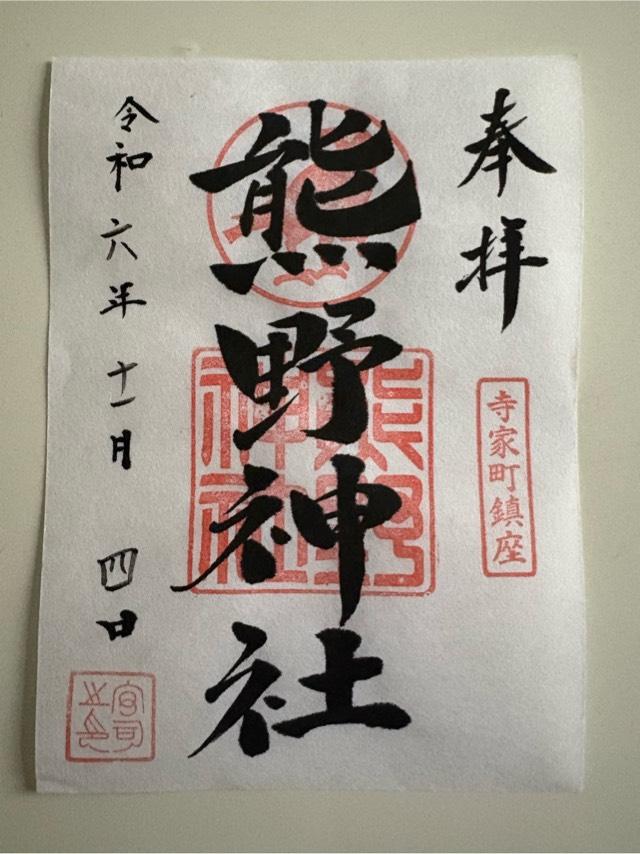 奉拝
寺家町鎮座
熊野神社
熊野神社
令和六年十一月四日
宮司之印